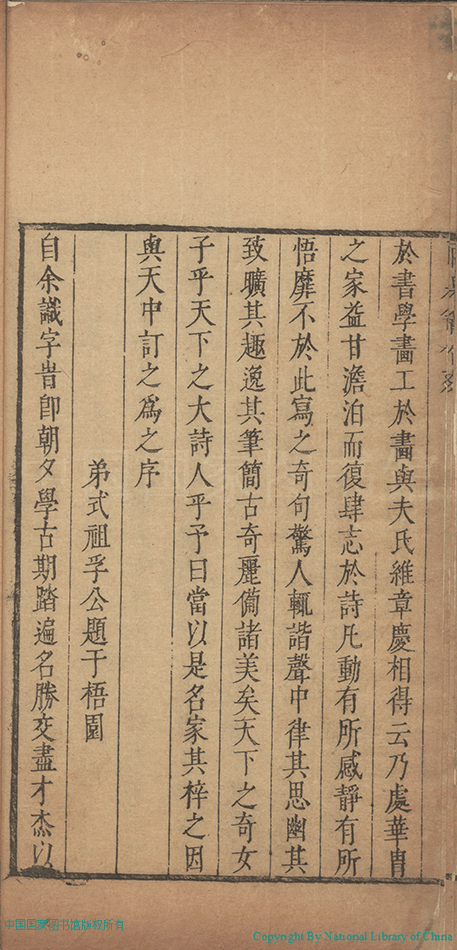 於書學畫工於畫與夫氏維章慶相得云乃處華胄
之家益甘澹泊而復肆志於詩凡動有所感靜有所
悟靡不於此寫之奇句驚人輒諧聲中律其思幽其
致曠其趣逸其筆簡古奇麗備諸美矣天下之奇女
子乎天下之大詩人乎予曰當以是名家其梓之因
與天中訂之為之序
弟式祖孚公題于梧園
自余識字昔即朝夕學古期踏遍名勝交盡才杰以
中国国家图书馆版权所有
Copyright By National Library of China